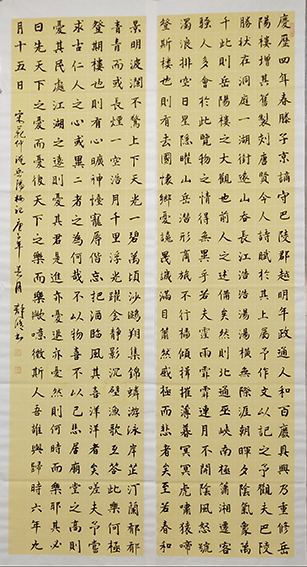 慶歷四年春滕子京謫守巴陵郡越明年政通人和百廢具興乃重修岳
陽樓增其舊制刻唐賢今人詩賦於其上屬予作文以記之予觀夫巴陵
勝狀在洞庭一湖銜遠山吞長江浩浩湯湯橫無際涯朝暉夕陰氣象萬
千此則岳陽樓之大觀也前人之述備矣然則北通巫峽南極瀟湘遷客
騷人多會於此覽物之情得無異乎若夫霪雨霏霏連月不開陰風怒號
濁浪排空日星隱耀山岳潛形商旅不行檣傾楫摧薄暮冥冥虎嘯猿啼
登斯樓也則有去國懷鄉憂讒畏譏滿目蕭然感極而悲者矣至若春和
景明波瀾不驚上下天光一碧萬頃沙鷗翔集錦鱗游泳岸芷汀蘭郁郁
青青而或長煙一空浩月千里浮光躍金靜影沉璧漁歌互答此樂何極
登斯樓也則有心曠神怡寵辱偕忘把酒臨風其喜洋洋者矣嗟夫予嘗
求古仁人之心或異二者之為何哉不以物喜不以己悲居廟堂之高則
憂其民處江湖之遠則憂其君是進亦憂退亦憂然則何時而樂耶其必
曰先天下之憂而憂後天下之樂而樂歟噫微斯人吾誰與歸時六年九
月十五日
宋范仲淹岳陽樓記 年 月 書